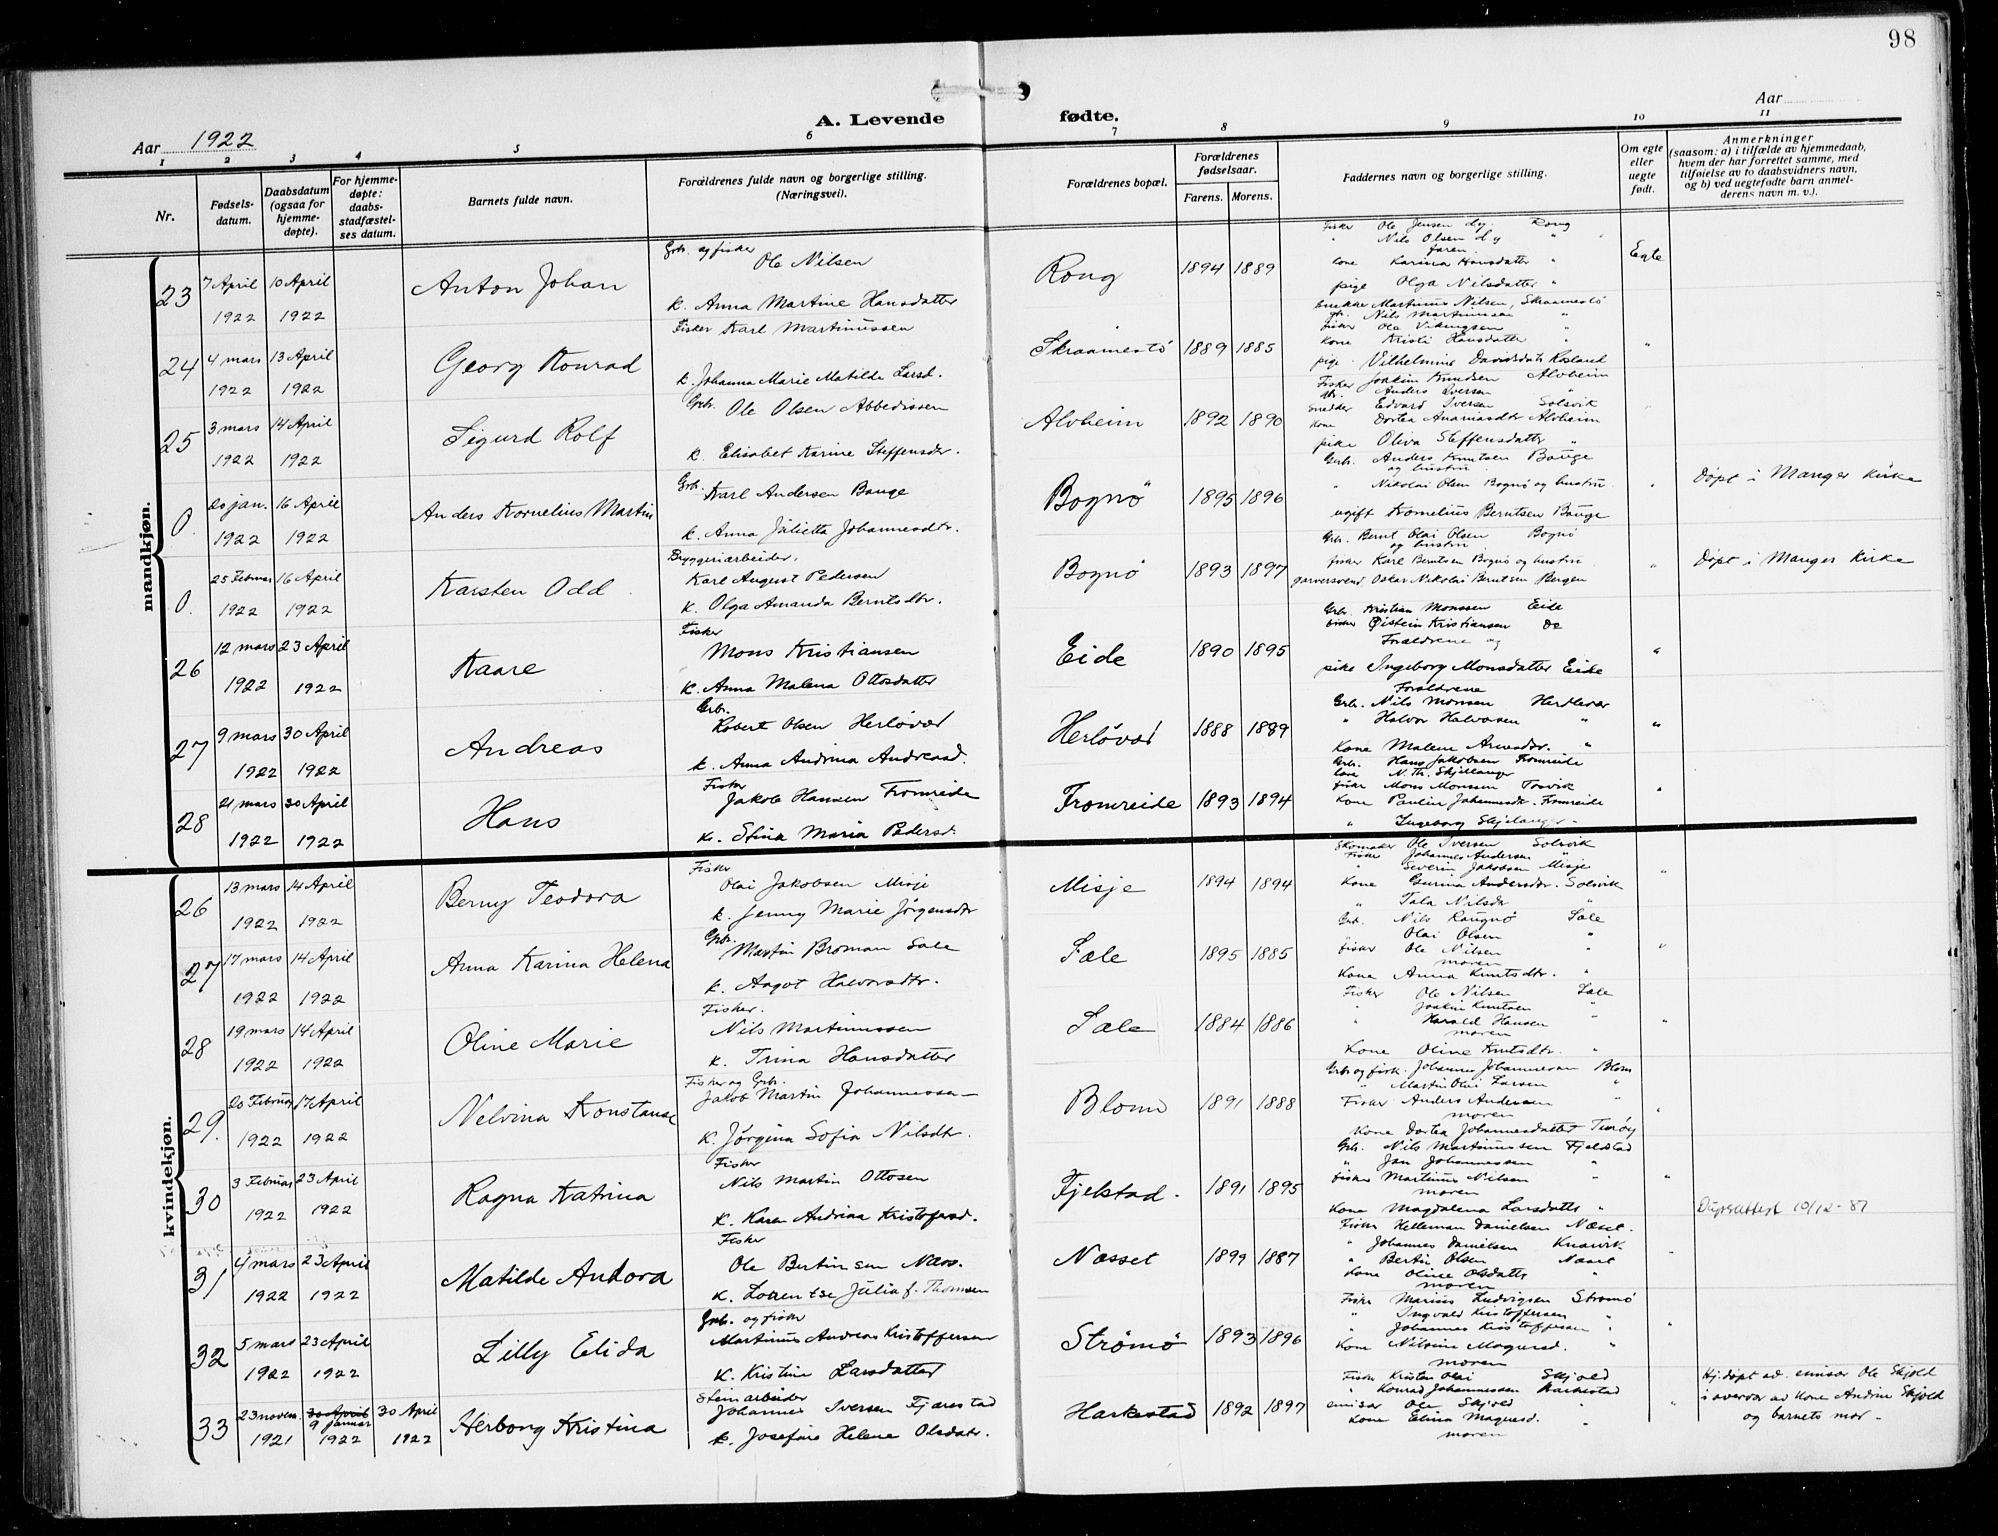 98
Aar 1922
A. Levende fødte.
Aar
1 2 3 4 5 6 7 8 9 10 11
Nr.
Fødsels-
datum.
Daabsdatum
(ogsaa for
hjemme-
døpte).
For hjemme-
døpte:
daabs-
stadfæstel-
ses datum.
Barnets fulde navn.
Forældrenes fulde navn og borgerlige stilling.
(Næringsvei).
Forældrenes bopæl.
Forældrenes
fødselsaar.
Farens. Morens.
Faddernes navn og borgerlige stilling.
Om egte
eller
uegte
født.
Anmerkninger
(saasom: a) i tilfælde av hjemmedaab,
hvem der har forrettet samme, med
tilføielse av to daabsvidners navn,
og b) ved uegtefødte barn anmel-
derens navn m. v.).
mandkjøn.
23 7 April 1922 10 April 1922 Anton Johan
Grb. og fisker
Ole Nilsen
k. Anna Martine Hansdatter
Rong 1894 1889
Fisker Ole Jensen d.y Rong
" Nils Olsen d.y "
faren
kone Karina Hansdatter "
pige Olga Nilsdatter "
Egte
24 4 mars 1922 13 April 1922 Georg Konrad
Fisker Karl Martinussen
k. Johanna Marie Matilde Larsd.
Skraamestö 1889 1885
Snekker Martinus Nilsen, Skraamestö
gr. Nils Martinussen "
fisker Ole Vikingsen "
kone Kristi Hansdatter "
pige Vilhelmine Davidsdatr Røsland
"
25 3 mars 1922 14 April 1922 Sigurd Rolf
Grb. Ole Olsen Abbedissen
k. Elisabet Karine Steffensdr.
Alvheim 1892 1890
Fisker Joakim Knudsen Alvheim
Gr. Anders Iversen "
Snedker Edvard Iversen Solsvik
kone Dortea Ananiasdtr Alvheim
pike Oliva Steffensdatter "
0 20 jan. 1922 16 April 1922 Anders Kornelius Martin
Grb. Karl Andersen Bauge
k. Anna Julietta Johannesdtr.
Bognö 1895 1896
Grb. Anders Knutsen Bauge
og hustru
" Nikolai Olsen Bognö og hustru
ugift Kornelius Berntsen Bauge
"
Døpt i Manger kirke
0. 25 Februar 1922 16 April 1922 Karsten Odd
Byggeriarbeider,
Karl August Pedersen
k. Olga Amanda Berntsdtr.
Bognö 1893 1897
Grb. Bernt Olai Olsen Bognö
og hustru
fisker Karl Berntsen Bognö og hustru
garversvend Oskar Nikolai Berntsen Bergen
"
Døpt i Manger Kirke
26 12 mars 1922 23 April 1922 Kaare
Fisker
Mons Kristiansen
k. Anna Malena Ottosdatter
Eide 1890 1895
Grb. Kristian Monssen Eide
fisker Øistein Kristiansen Do
Forældrene og
pike Ingeborg Monsdatter Eide
"
27 9 mars 1922 30 April 1922 Andreas
Grb.
Robert Olsen Herløvær
k. Anna Andrina Andreasd.
Herløvær 1888 1889
Forældrene
Grb. Nils Monsen Herdlevær
" Halvor Halvorsen "
Kone Malene Arnesdtr. "
"
28 21 mars 1922 30 April 1922 Hans
Fisker
Jakob Hansen Fromreide
k. Stina Maria Pedersd.
Fromreide 1893 1894
Grb. Hans Jakobsen Fromreide
kone N. Th. Skjellanger
fisker Mons Monssen Tosvik
Kone Paulin Johannesdr. Fromreide
" Ingeborg Skjelanger
"
kvindekjøn.
26 13 mars 1922 14 April 1922 Berny Teodora
Fisker
Olai Jakobsen Misje
k. Jenny Marie Jørgensdtr
Misje 1894 1894
Skomaker Ole Iversen Solsvik
Fisker Johannes Andersen "
" Severin Jakobsen Misje
Kone Gurina Andersdr. Solsvik
" Tala Nilsdtr "
"
27 17 mars 1922 14 April 1922 Anna Karina Helena
Grb.
Martin Broman Sæle
k. Aagot Halvorsdtr.
Sæle 1895 1885
Grb. Nils Raugnø Sæle
" Olai Olsen "
fisker Ole Nilsen "
moren
Kone Anna Knutsdtr. "
"
28 19 mars 1922 14 April 1922 Oline Marie
Fisker.
Nils Martinussen
k. Trina Hansdatter
Sæle 1884 1886
Fisker Ole Nilsen Sæle
" Joakim Knutsen "
" Harald Hansen "
moren
Kone Oline Knutsdtr. "
"
29. 20 Februar 1922 17 April 1922 Nelvina Konstanse
Fisker og Grb.
Jakob Martin Johannessen
k. Jørgina Sofia Nilsdtr.
Blom 1891 1888
Grb og fisk. Johannes Johannessen Blom
" Martin Olai Larsen "
Fisker Anders Andersen "
moren
Kone Dortea Johannesdatter Turøy
30 3 Februar 1922 23 April 1922 Ragna Katrina
Fisker
Nils Martin Ottosen
k. Karen Andrina Kristofersd.
Fjelstad. 1891 1895
Grb. Nils Martinussen Fjeldstad
" Jan Johannessen "
Fisker Martinus Nilsen "
moren
Kone Magdalena Larsdatter "
"
Dåpsattest 10/12-87
31 4 mars 1922 23 April 1922 Matilde Andora
Fisker
Ole Bertinsen Næss.
k. Lorentse Julia f. Thomsen
Næsset 1899 1887
Fisker Helleman Danielsen Næset.
" Johannes Danielsen Knarvik
" Bertin Olsen Næset
Kone Oline Olsdatter "
moren
"
32 5 mars 1922 23 April 1922 Lilly Elida
Grb. og fisker
Martinus Andreas Kristoffersen
k. Kristine Larsdatter
Strömö 1893 1896
Fisker Marius Ludvigsen Strömö
" Ingvald Kristoffersen "
" Johannes Kristoffersen "
Kone Nilsine Magnesd. "
moren
"
33 23 novem. 1921 30 April 9 januar 1922 30 April 1922 Herborg Kristina
Steinarbeider
Johannes Iversen Fjærestad
k. Josefine Helene Olsdatr.
Harkestad 1892 1897
Fisker Kristen Olai Skjold
" Konrad Johannessen Harkestad
emisær Ole Skjold "
Kone Elina Magnesd. "
moren
"
Hj. døpt av emisær Ole Skjold
i overvær av kone Andrine Skjold
og barnets mor